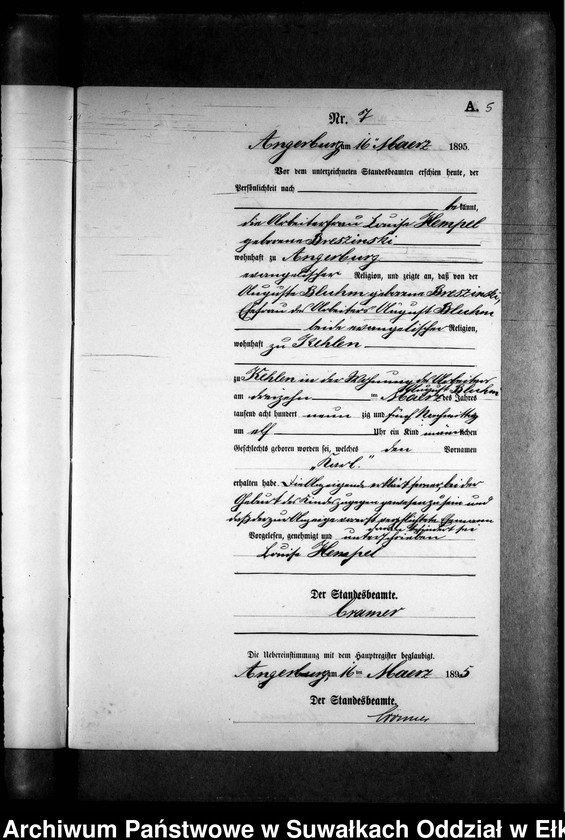 A. 5
Nr. 7
Angerburg am 16 ten Maerz 1895.
Vor dem unterzeichneten Standesbeamten erschien heute, der
Persönlichkeit nach
bekannt,
die Arbeiterfrau Louise Hempel
geborene Breszinski
wohnhaft zu Angerburg
evangelischer Religion, und zeigte an, daß von der
Auguste Bluhm geborene Breszinski,
Ehefrau des Arbeiters August Bluhm
beide evangelischer Religion,
wohnhaft zu Kehlen
zu Kehlen in der Wohnung des Arbeiter
August Bluhm
am dreizehn im Maerz des Jahres
tausend acht hundert neun zig und fünf Nachmittag
um elf Uhr ein Kind männlichen
Geschlechts geboren worden sei, welches den Vornamen
„Karl."
erhalten habe. Die Anzeigende erklärt ferner bei der
Geburt des Kindes zugegen gewesen zu sein und
daß der zur Anzeige verpflichtete Ehemann
behindert sei
Vorgelesen, genehmigt und unterschrieben
Louise Hempel
Der Standesbeamte.
Cramer
Die Uebereinstimmung mit dem Hauptregister beglaubigt.
Angerburg am 16 ten Maerz 1895
Der Standesbeamte.
Cramer
Archiwum Państwowe w Suwałkach Oddział w Ełk